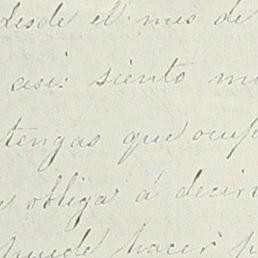 desde el mes de
asi: siento m
tengas que ocup
obliga á decir
puede hacer p